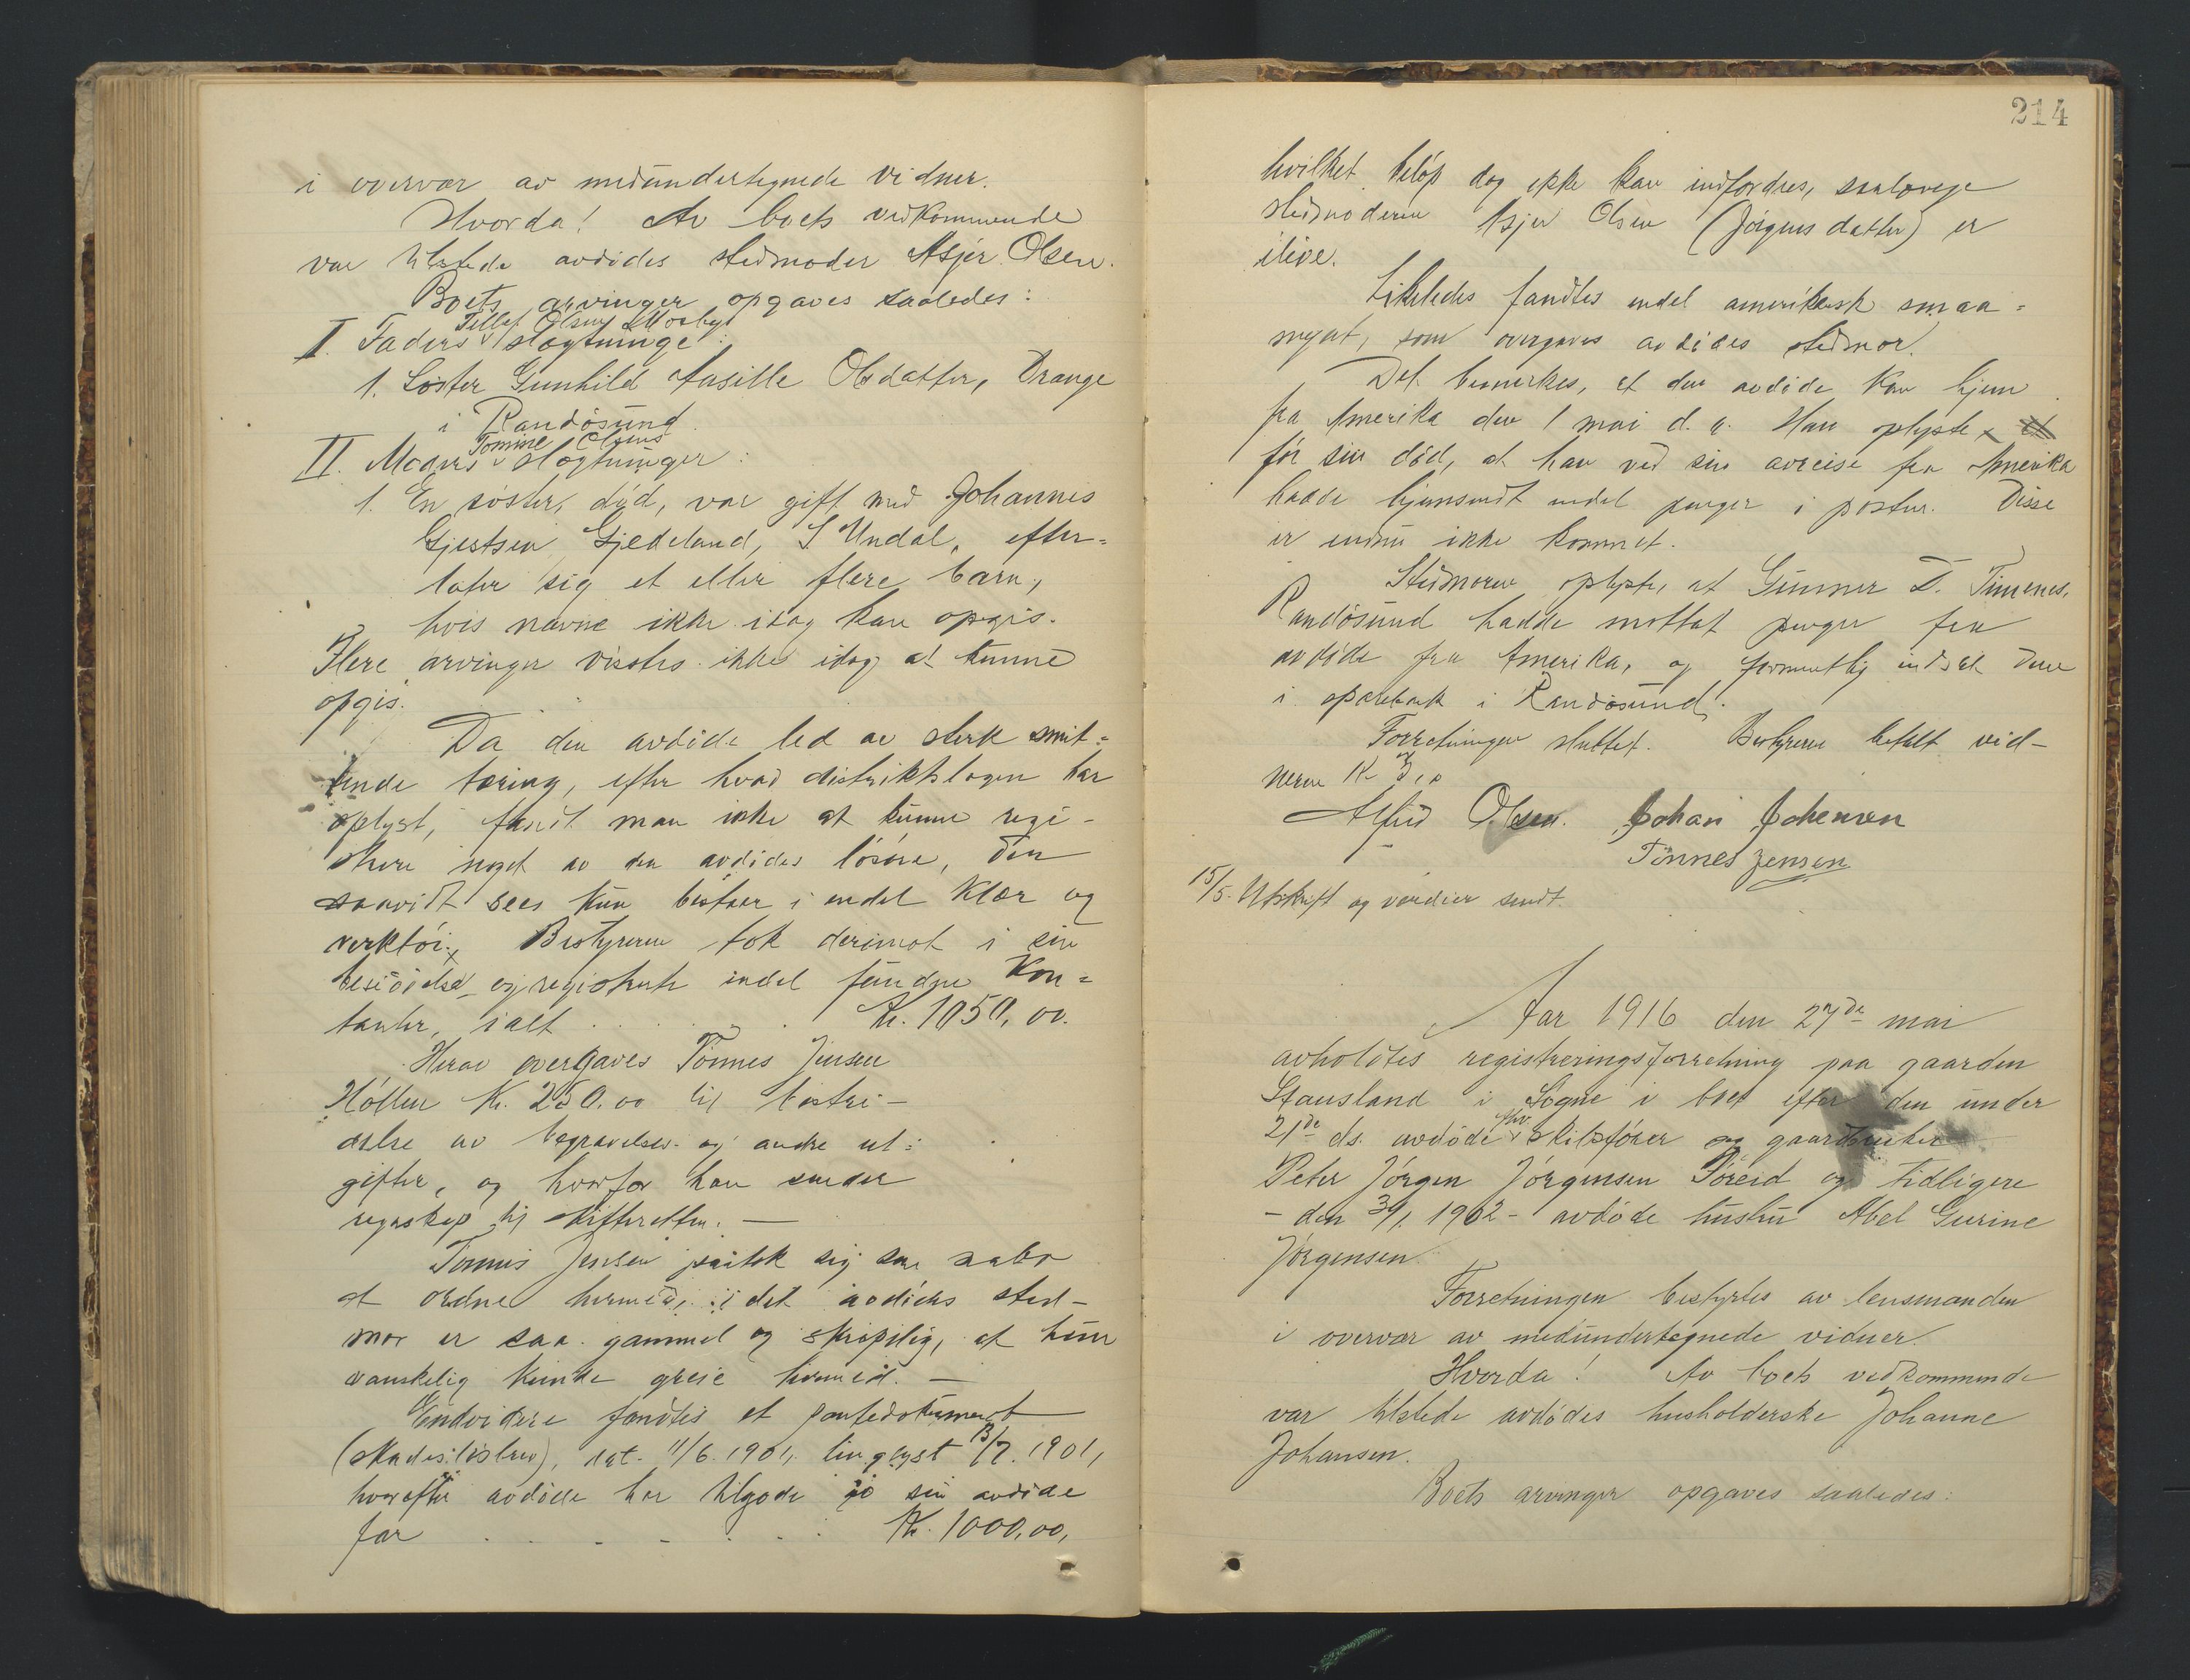 i overvær av medundertegnede vidner.
Hvorda! Av boets vedkommende
var tilstede avdødes stedmoder Asjer Olsen.
Boets arvinger opgaves saaledes:
Tellef Olsens Mosby
I. Faders slægtninge:
1. Søster Gunhild Aasille Olsdatter, Drange
i Randøsund.
Tomine Olsens
II. Moders slægtninger:
1. En søster, død, var gift med Johannes
Gjertsen Gjedeland, S. Undal, efter-
later sig et eller flere barn,
hvis navne ikke idag kan opgis.
Flere arvinger visstes ikke idag at kunne
opgis.
Da den avdøde led av sterk smit-
tende tæring, efter hvad distriktslægen har
oplyst, fandt man ikke at kunne regi-
strere noget av den avdødes løsøre, den
saavidt sees kun bestaar i endel klær og
verktøi. Bestyreren tok derimot i sin
besiddelse og registrerte endel fundne kon-
tanter, ialt . . . Kr. 1050,00.
Herav overgaves Tønnes Jensen
Høllen Kr. 250.00 til bestri-
delse av begravelses- og andre ut-
gifter, og hvorfor han sender
regnskap til skifteretten. —
Tønnes Jensen paatok sig som nabo
at ordne hermed, idet avdødes sted-
mor er saa gammel og skrøpelig, at hun
vanskelig kunde greie hermed. —
Endvidere fandtes et pantedokument
(skadesløsbrev), dat. 11/6. 1901, tinglyst 13/7. 1901,
hvorefter avdøde har tilgode hos sin avdøde
far . . . . . . Kr. 1000,00,
214
hvilket beløp dog ikke kan indfordres, saalænge
stedmoderen Asjer Olsen (Jørgensdatter) er
ilive.
Likeledes fandtes endel amerikansk smaa-
mynt, som overgaves avdødes stedmor.
Det bemerkes, at den avdøde kom hjem
fra Amerika den 1 mai d. a. Han oplyste
før sin død, at han ved sin avreise fra Amerika
hadde hjemsendt endel penger i posten. Disse
er endnu ikke kommet.
Stedmoren oplyste, at Gunner T. Timenes,
Randøsund hadde mottat penger fra
avdøde fra Amerika, og formentlig indsat dem
i sparebank i Randøsund.
Forretningen sluttet. Bestyreren betalt vid-
nerne Kr
Alfred Olsen. Johan Johensen
Tønnes Jensen
15/5. Utskrift og værdier sendt.
Aar 1916 den 27de mai
avholdtes registreringsforretning paa gaarden
Stausland i Søgne i boet efter den under
21de ds. avdøde fhv. skibsfører og gaardbruker
Peter Jørgen Jørgensen Føreid og tidligere
- den 3/1. 1902 - avdøde hustru Abel Gurine
Jørgensen.
Forretningen bestyrtes av lensmanden
i overvær av medundertegnede vidner.
Hvorda! Av boets vedkommende
var tilstede avdødes husholderske Johanne
Johansen.
Boets arvinger opgaves saaledes: